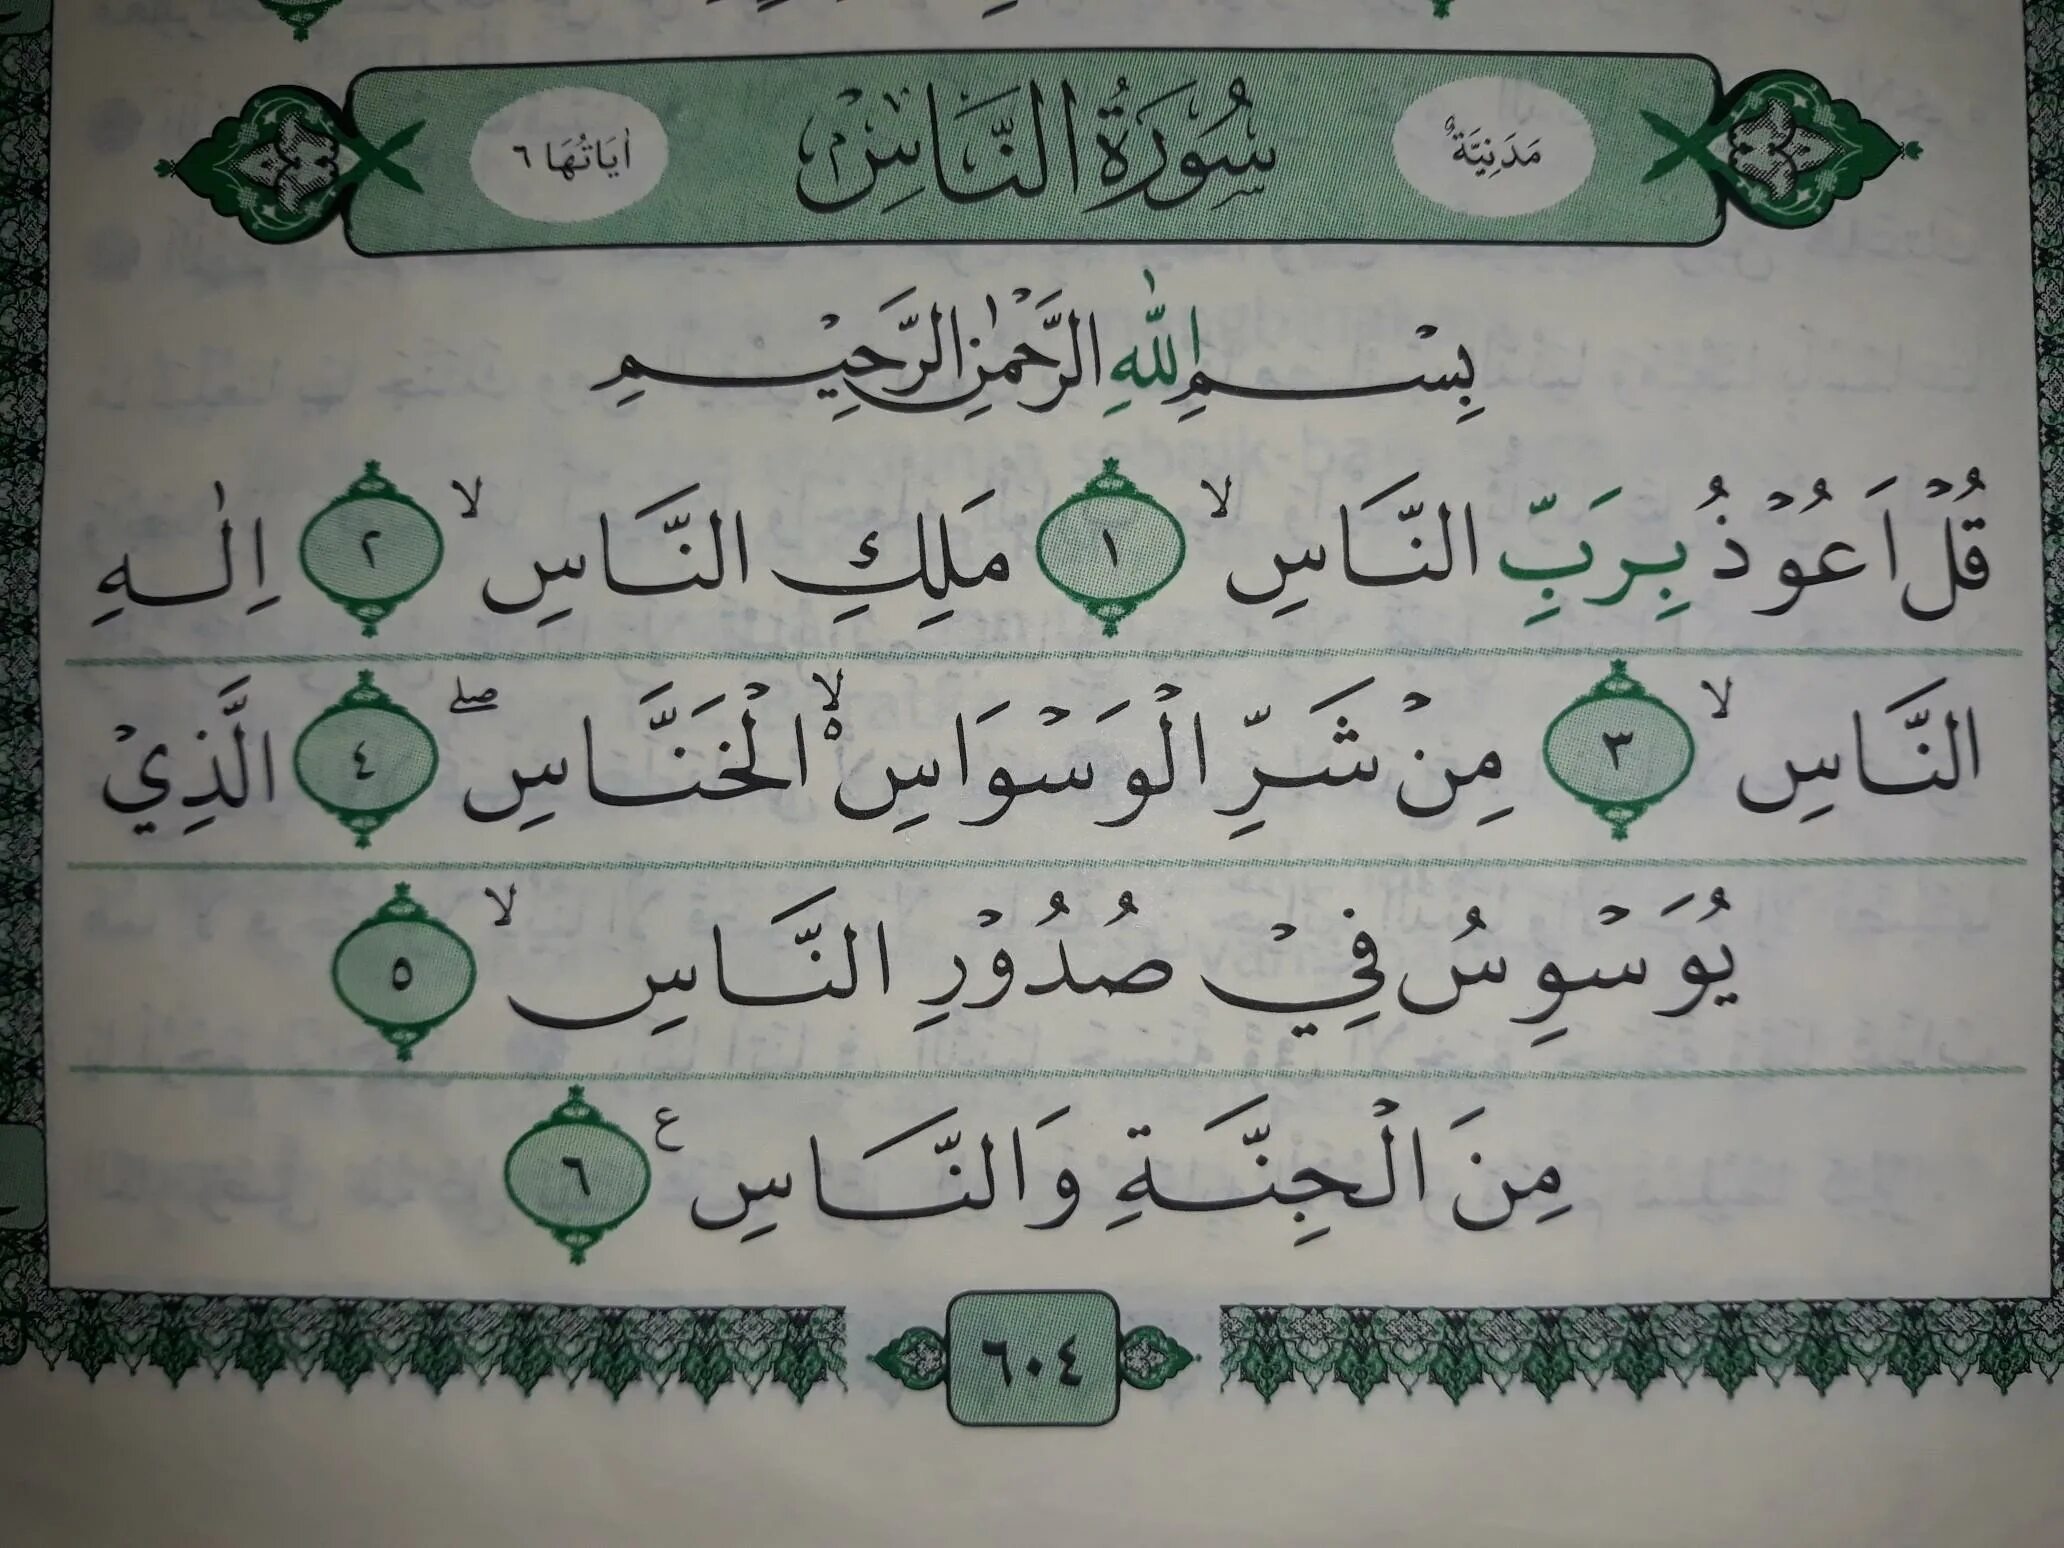 مَدَنِيَّةٌ سُوْرَةُ النَّاسِ اٰيَاتُهَا ٦
بِسْمِ اللّٰهِ الرَّحْمٰنِ الرَّحِيْمِ
قُلْ اَعُوْذُ بِرَبِّ النَّاسِۙ ١ مَلِكِ النَّاسِۙ ٢ اِلٰهِ
النَّاسِۙ ٣ مِنْ شَرِّ الْوَسْوَاسِ ەۙ الْخَنَّاسِۖ ٤ الَّذِيْ
يُوَسْوِسُ فِيْ صُدُوْرِ النَّاسِۙ ٥
مِنَ الْجِنَّةِ وَالنَّاسِ ع ٦
٦٠٤